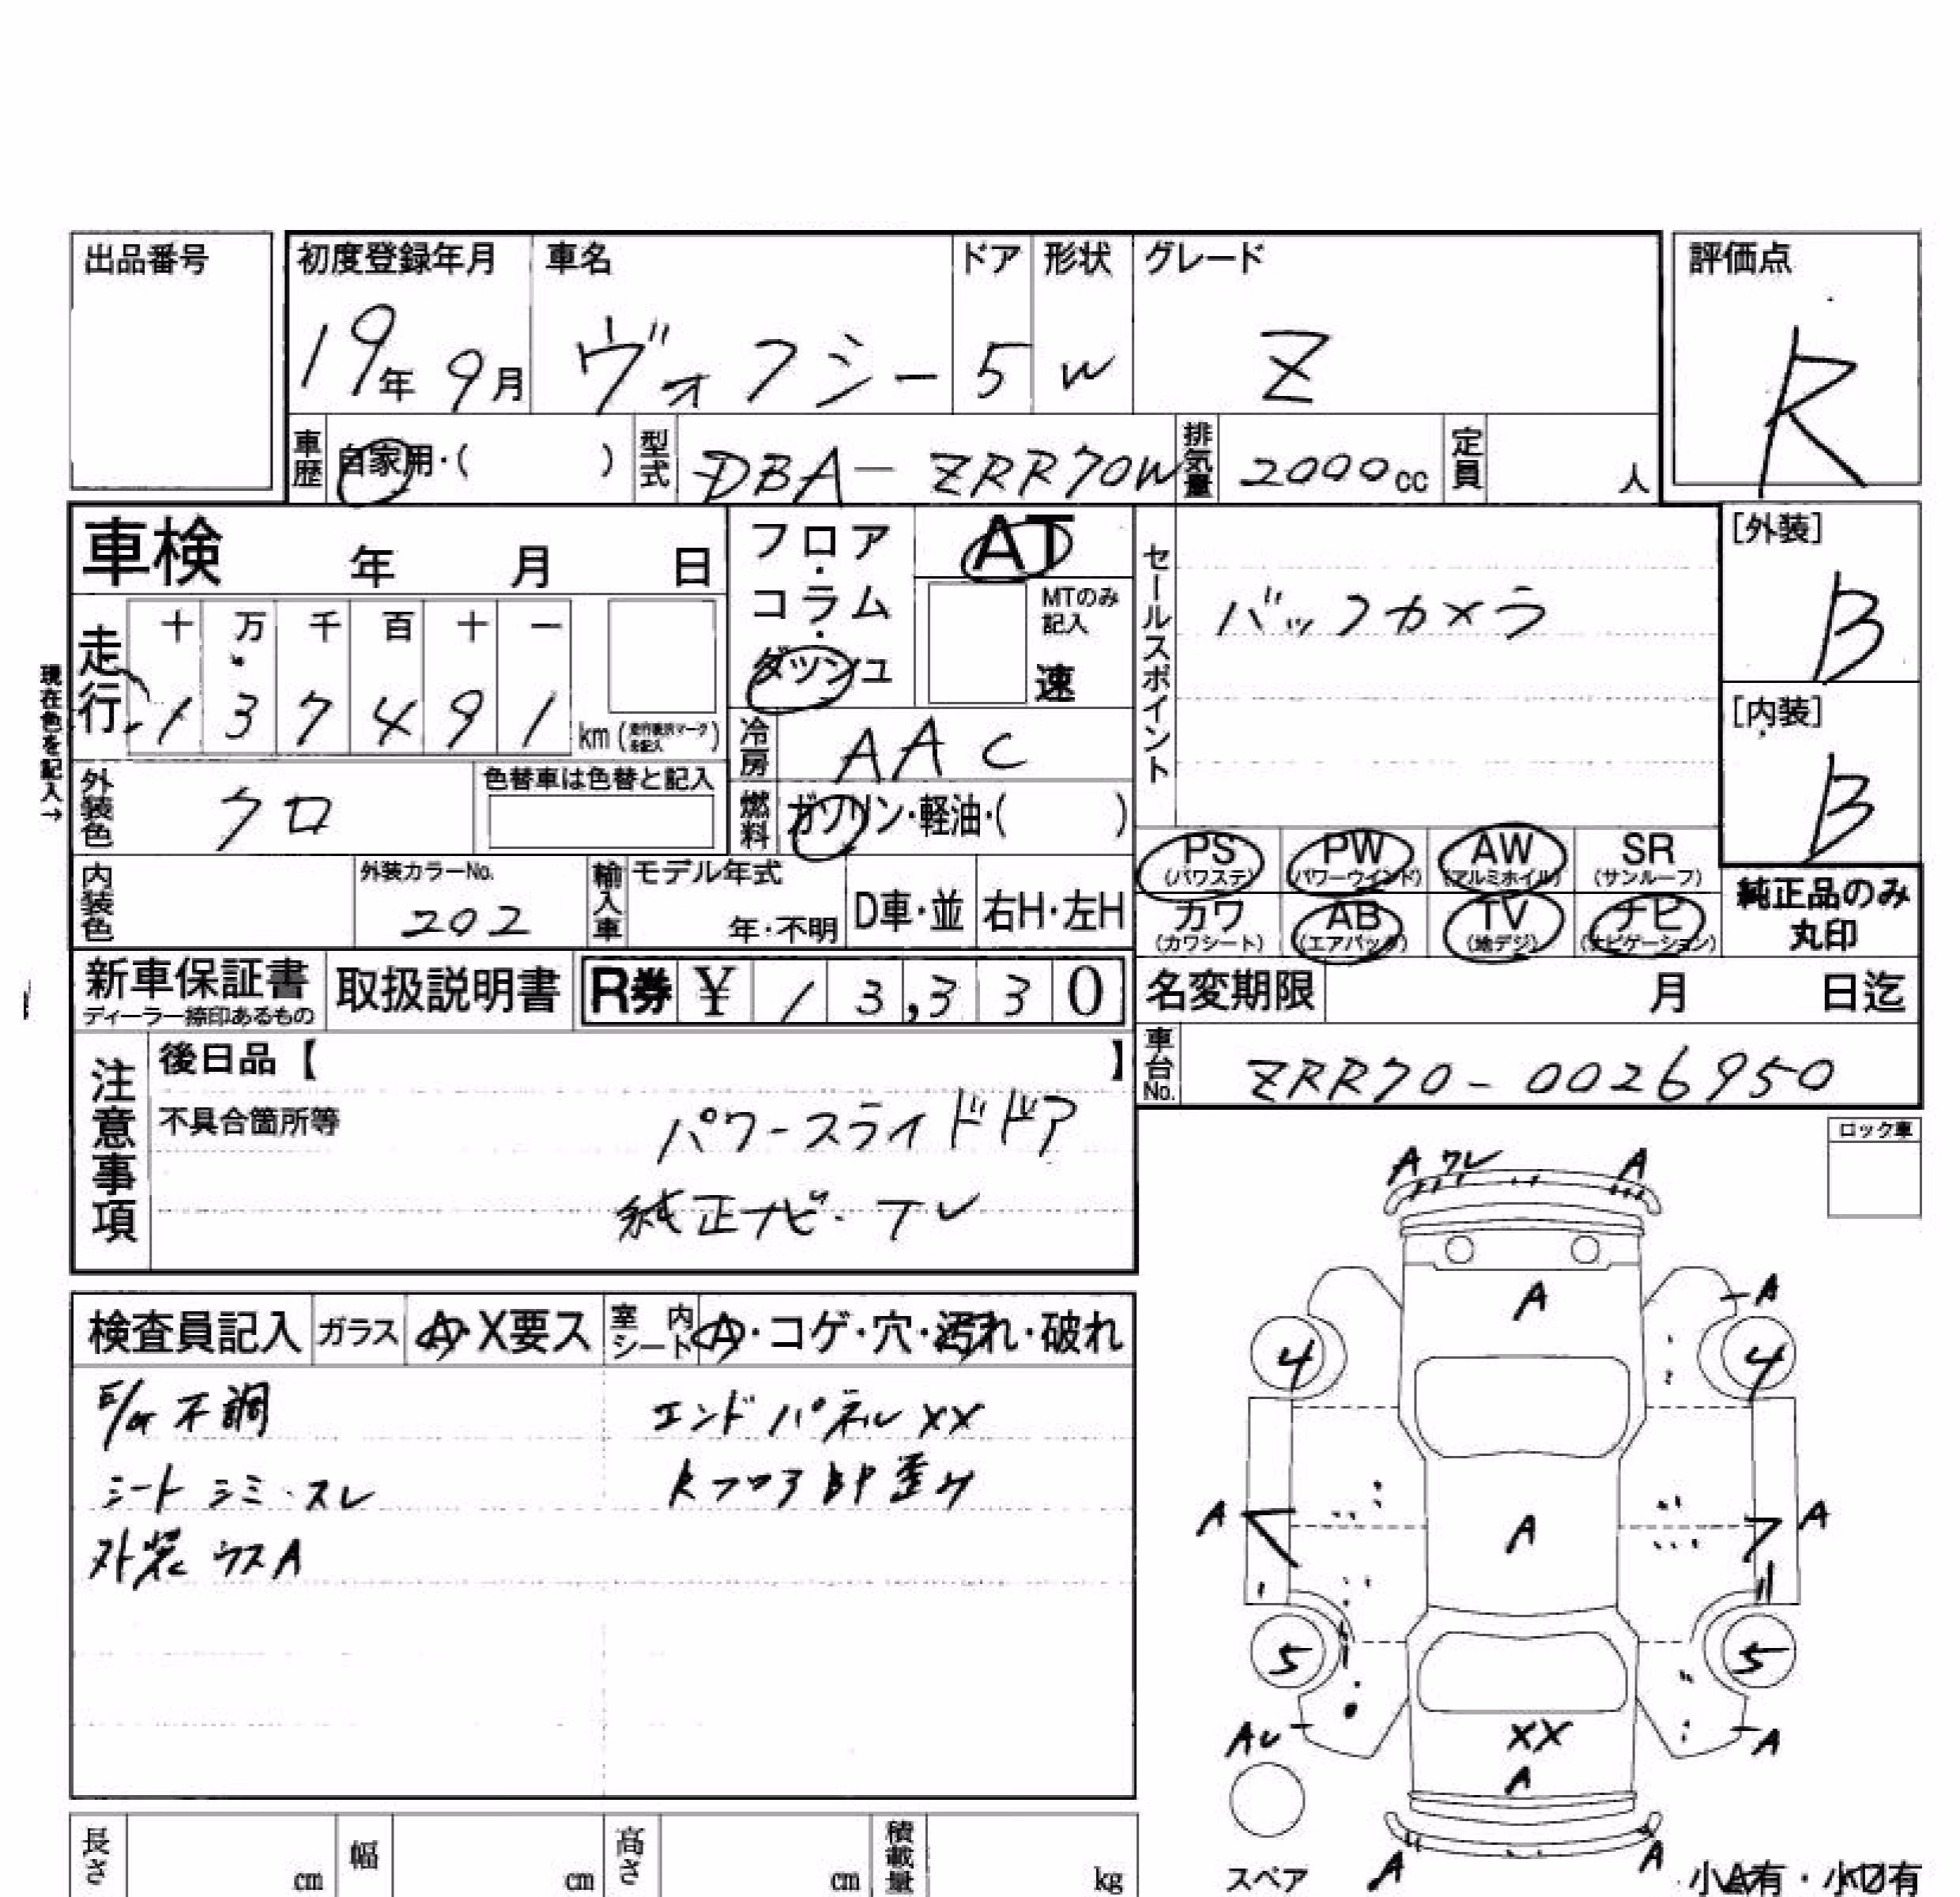 出品番号
初度登録年月 車名 ドア 形状 グレード 評価点
19年 9月 ヴォクシー 5 W Z R
車歴 自家用・( ) 型式 DBA-ZRR70W 排気量 2000cc 定員 人
車検 年 月 日
フロア・コラム・ダッシュ
AT
MTのみ記入 速
セールスポイント
バックカメラ
[外装]
B
[内装]
B
現在色を記入→
走行 十 万 千 百 十 一
1 3 7 4 9 1 km(走行換所マーク を記入)
冷房 AAC
外装色 クロ 色替車は色替と記入
燃料 ガソリン・軽油・( )
内装色 外装カラーNo. 202
輸入車 モデル年式 年・不明 D車・並 右H・左H
PS (パワステ) PW (パワーウインド) AW (アルミホイル) SR (サンルーフ)
カワ (カワシート) AB (エアバック) TV (地デジ) ナビ (ナビゲーション)
純正品のみ丸印
新車保証書 ディーラー捺印あるもの 取扱説明書 R券 ¥ 13,330
名変期限 月 日迄
車台No. ZRR70-0026950
注意事項
後日品【 】
不具合箇所等 パワースライドドア
純正ナビ・TV
ロック車
検査員記入 ガラス A・X要ス 室内シート A・コゲ・穴・汚れ・破れ
E/G不調 エンドパネルXX
シートシミ・スレ Rフロア BP歪み
外装ウスA
A ワレ A
A A
4 4
A A A
5 5
AU XX A
A
A A
スペア
小A有・小U有
長さ cm 幅 cm 高さ cm 積載量 kg